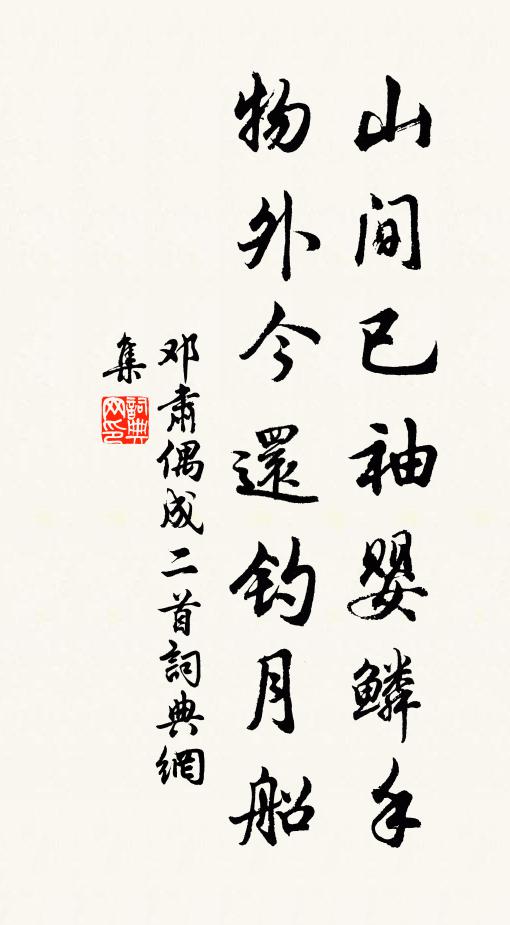 山间已袖婴鳞手
物外今還钓月船
邓肃偶成二首詞典網
集
詞典
网印